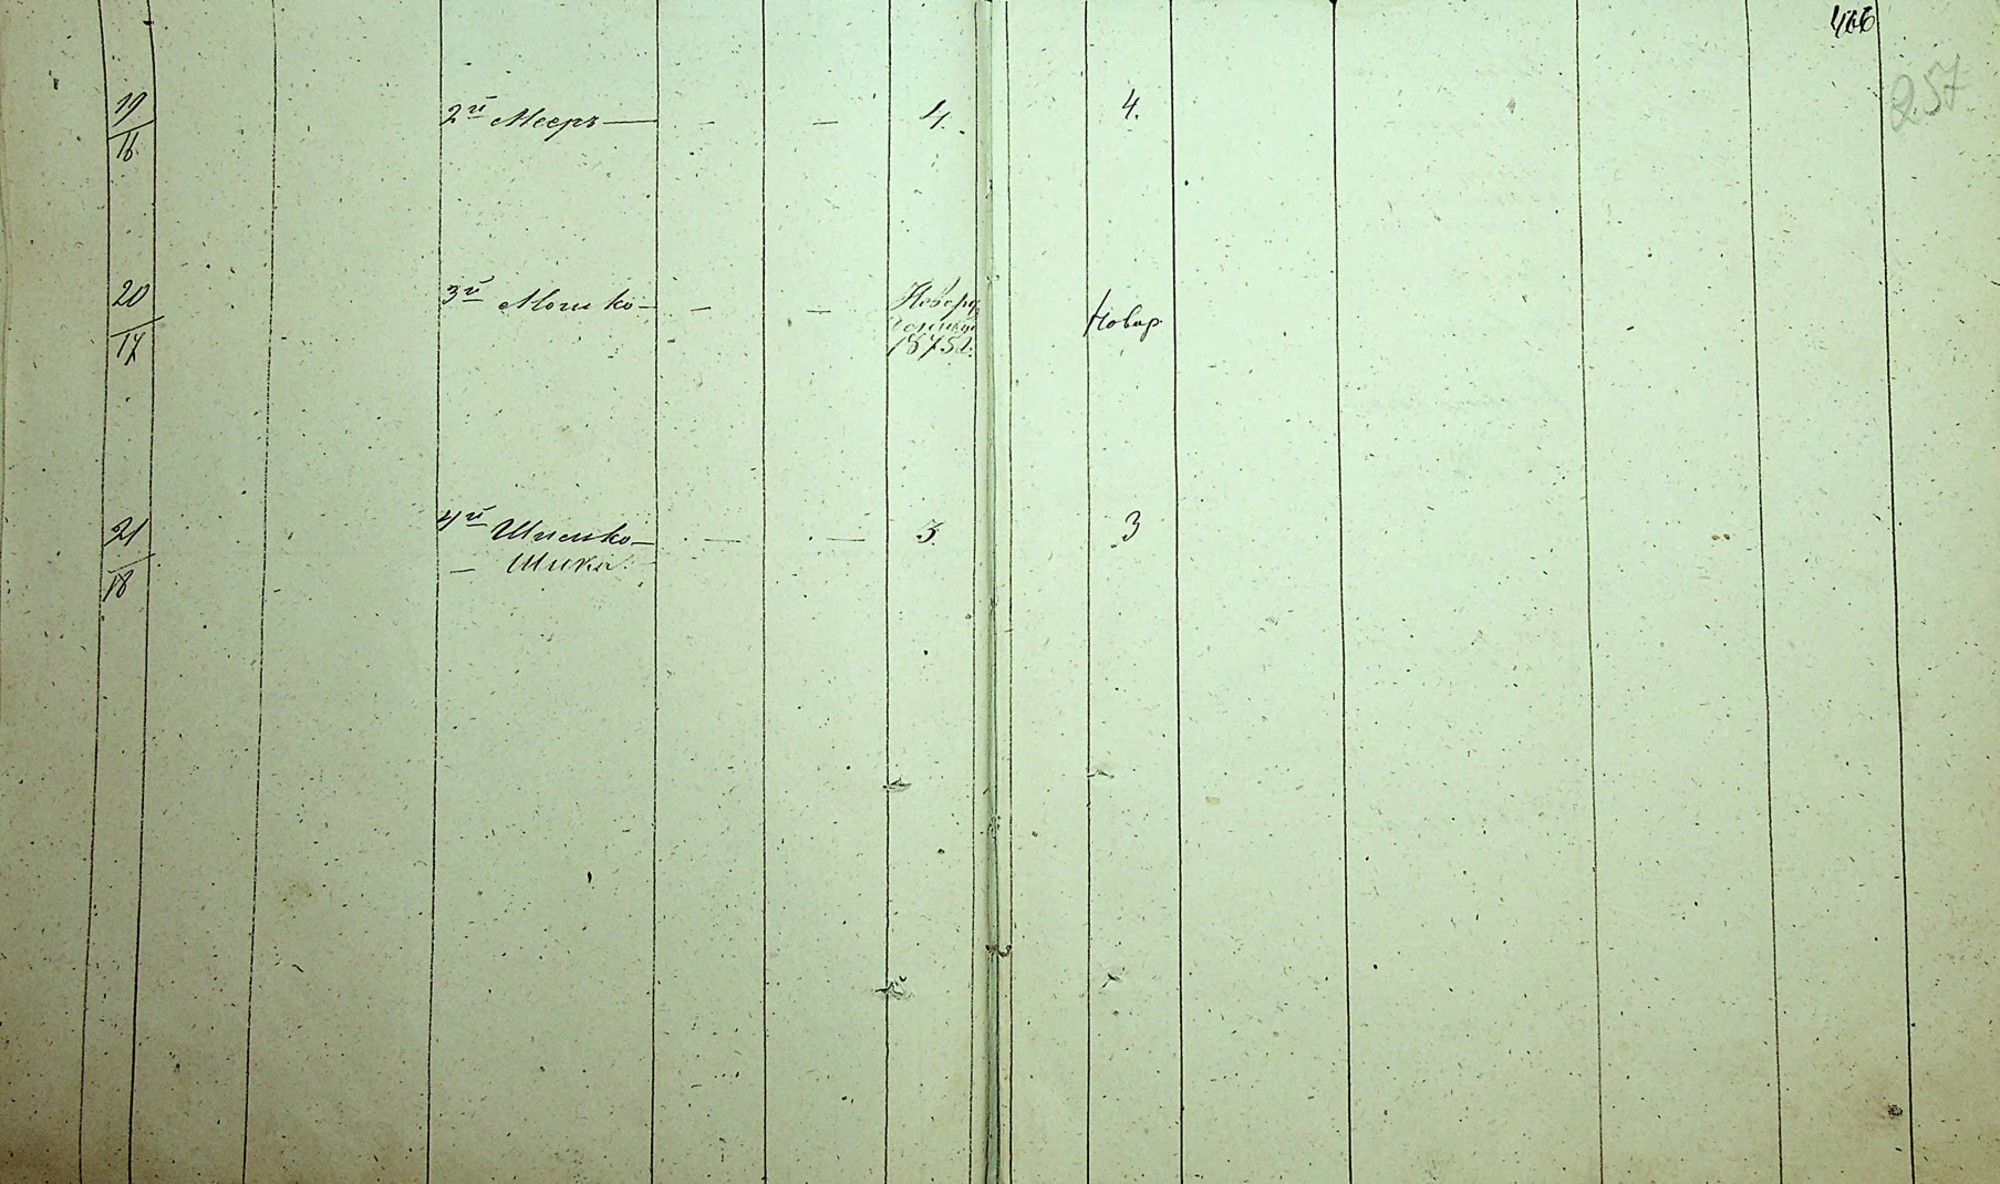 466
257
19 2й Мееръ — — — 4. 4.
16
20 3й Мошко — — — Новоро 1875 г. Новор
17
21 4й Шлемко — — — 3. 3
18 — Шика